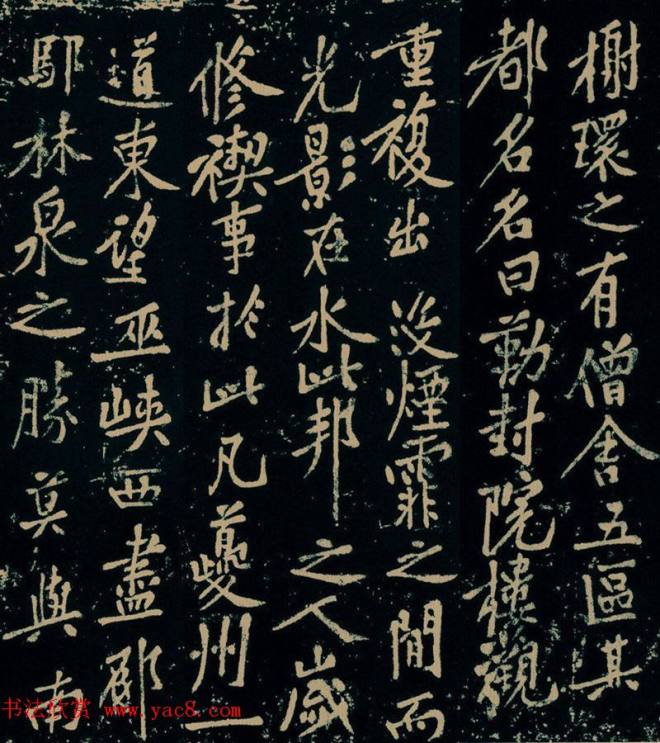 榭環之有僧舍五區其
都名名曰勤封院樓觀
重複出沒煙霏之閒而
光影在水此邦之人歲
修禊事於此凡夔州一
道東望巫峽西盡郁
鄢林泉之勝莫與南
书法欣赏 www.yac8.com